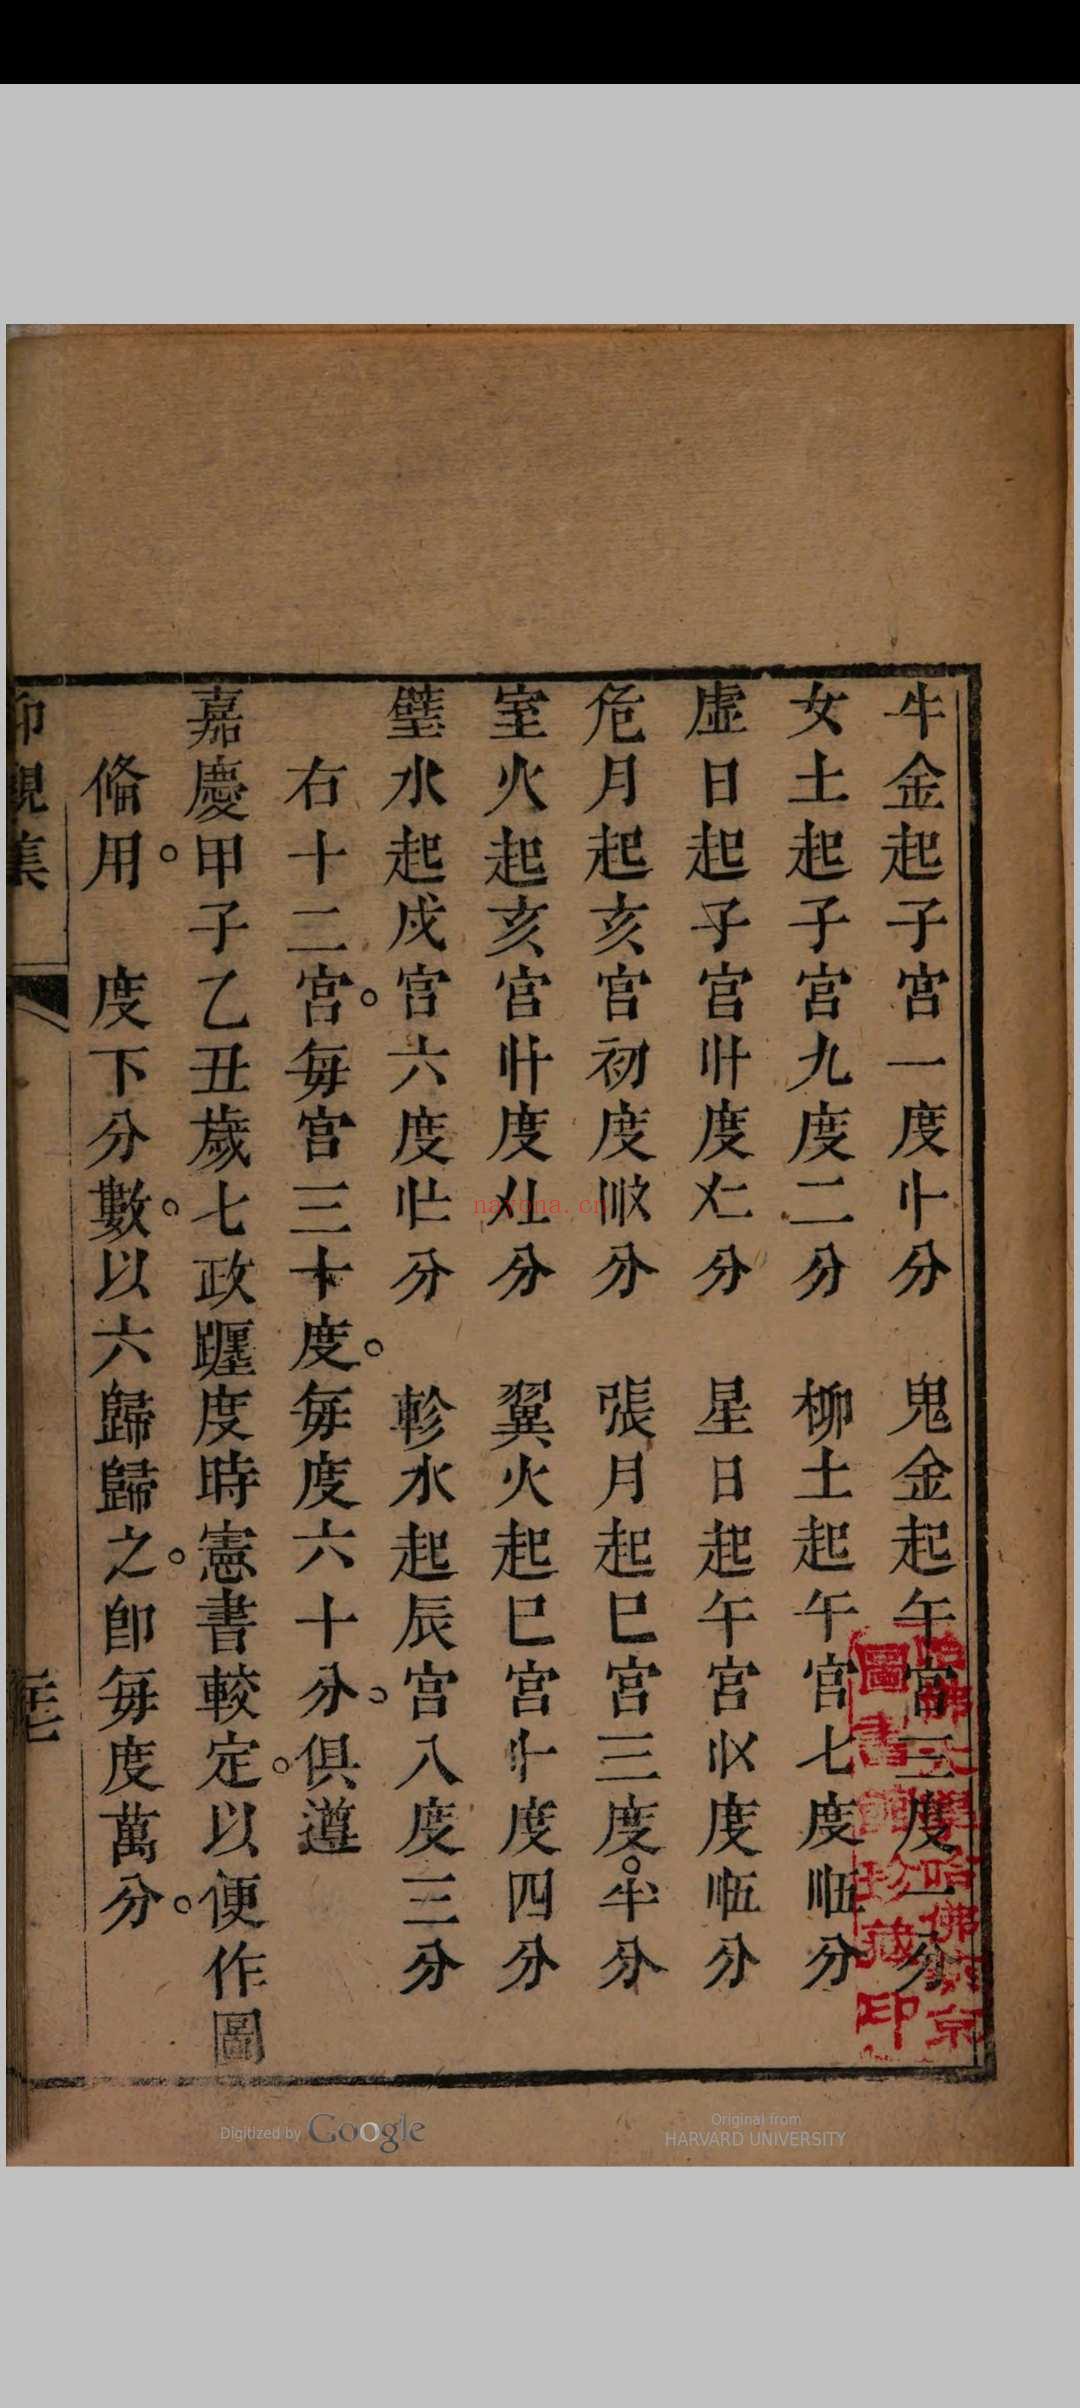 牛金起子宮一度分 鬼金起午宮三度一分
女土起子宮九度二分 柳土起午宮七度分
虛日起子宮度分 星日起午宮度分
危月起亥宮初度分 張月起巳宮三度。半分
室火起亥宮度分 翼火起巳宮度四分
璧水起戌宮六度分 軫水起辰宮八度三分
右十二宮。每宮三十度。每度六十分。俱遵
嘉慶甲子乙丑歲七政躔度時憲書較定。以便作圖
俻用。 度下分數。以六歸歸之。卽每度萬分。
仰觀集
哈佛大學哈佛燕京
圖書館珍藏印
nayona.cn
Digitized by Google
Original from
HARVARD UNIVERSITY